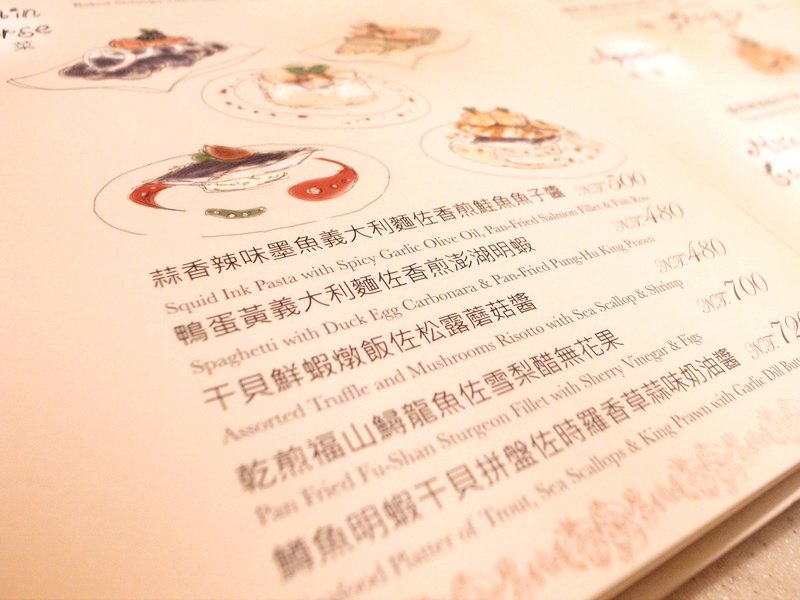 菜
蒜香辣味墨魚義大利麵佐香煎鮭魚魚子醬 NT.500
Squid Ink Pasta with Spicy Garlic Olive Oil, Pan-Fried Salmon Fillet & Fish Row
鴨蛋黃義大利麵佐香煎澎湖明蝦 NT.480
Spaghetti with Duck Egg Carbonara & Pan-Fried Pung-Hu King Prawn
干貝鮮蝦燉飯佐松露蘑菇醬 NT.480
Assorted Truffle and Mushrooms Risotto with Sea Scallop & Shrimp
乾煎福山鱘龍魚佐雪梨醋無花果 NT.700
Pan Fried Fu-Shan Sturgeon Fillet with Sherry Vinegar & Figs
鱒魚明蝦干貝拼盤佐時羅香草蒜味奶油醬 NT.
Platter of Trout, Sea Scallops & King Prawn with Garlic Dill